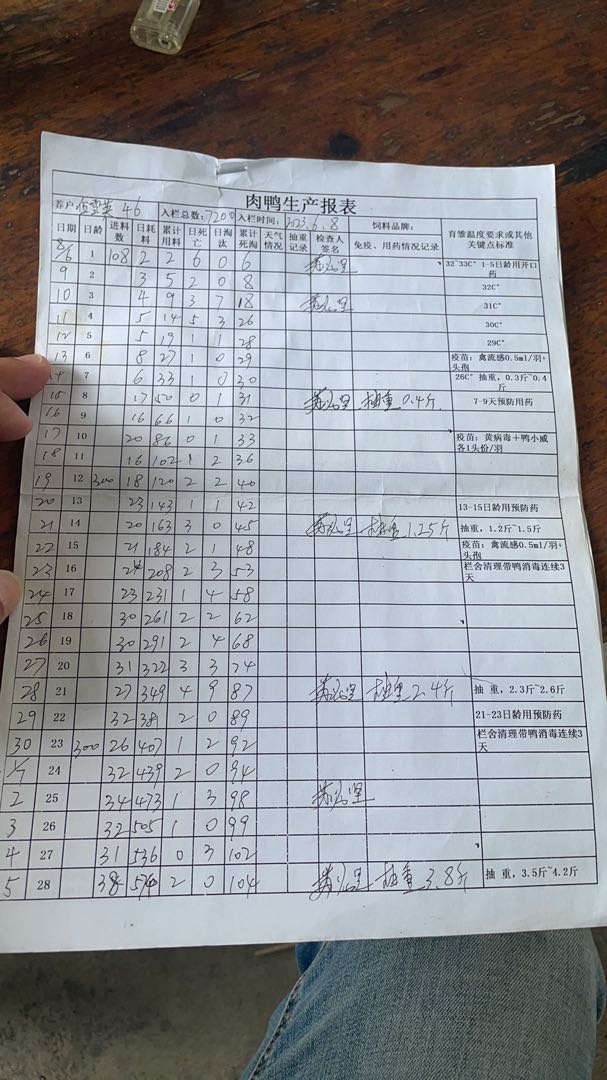 肉鸭生产报表
养户 46 入栏总数: 7200 入栏时间: 2023.6.8 饲料品牌:
日期 日龄 进料数 日耗料 累计用料 日死亡 日淘汰 累计死淘 天气情况 抽重记录 检查人签名 免疫、用药情况记录 育雏温度要求或其他关键点标准
8/6 1 108 2 2 6 0 6 32~33C° 1-5日龄用开口药
9 2 3 5 2 0 8 32C°
10 3 4 9 3 7 18 31C°
11 4 5 14 5 3 26 30C°
12 5 5 19 1 1 28 29C°
13 6 8 27 1 0 29 疫苗：禽流感0.5ml/羽+头孢
14 7 6 33 1 0 30 26C° 抽重，0.3斤~0.4斤
15 8 17 50 0 1 31 抽重 0.4斤 7-9天预防用药
16 9 16 66 1 0 32
17 10 20 86 0 1 33 疫苗：黄病毒＋鸭小威各1头份/羽
18 11 16 102 1 2 36
19 12 300 18 120 2 2 40
20 13 23 143 1 1 42 13-15日龄用预防药
21 14 20 163 3 0 45 抽重 1.25斤 抽重，1.2斤~1.5斤
22 15 21 184 2 1 48 疫苗：禽流感0.5ml/羽+头孢
23 16 24 208 2 3 53 栏舍清理带鸭消毒连续3天
24 17 23 231 1 4 58
25 18 30 261 2 2 62
26 19 30 291 2 4 68
27 20 31 322 3 3 74
28 21 27 349 4 9 87 抽重 2.4斤 抽 重，2.3斤~2.6斤
29 22 32 381 2 0 89 21-23日龄用预防药
30 23 300 26 407 1 2 92 栏舍清理带鸭消毒连续3天
1/7 24 32 439 2 0 94
2 25 34 473 1 3 98
3 26 32 505 1 0 99
4 27 31 536 0 3 102
5 28 38 574 2 0 104 抽重 3.8斤 抽 重，3.5斤~4.2斤